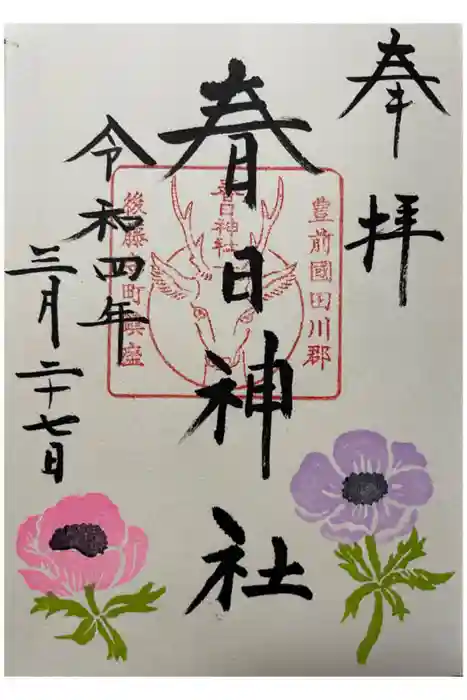 奉拝
春日神社
令和四年
三月二十七日
豊前國田川郡
春日神社
後藤町鎮座